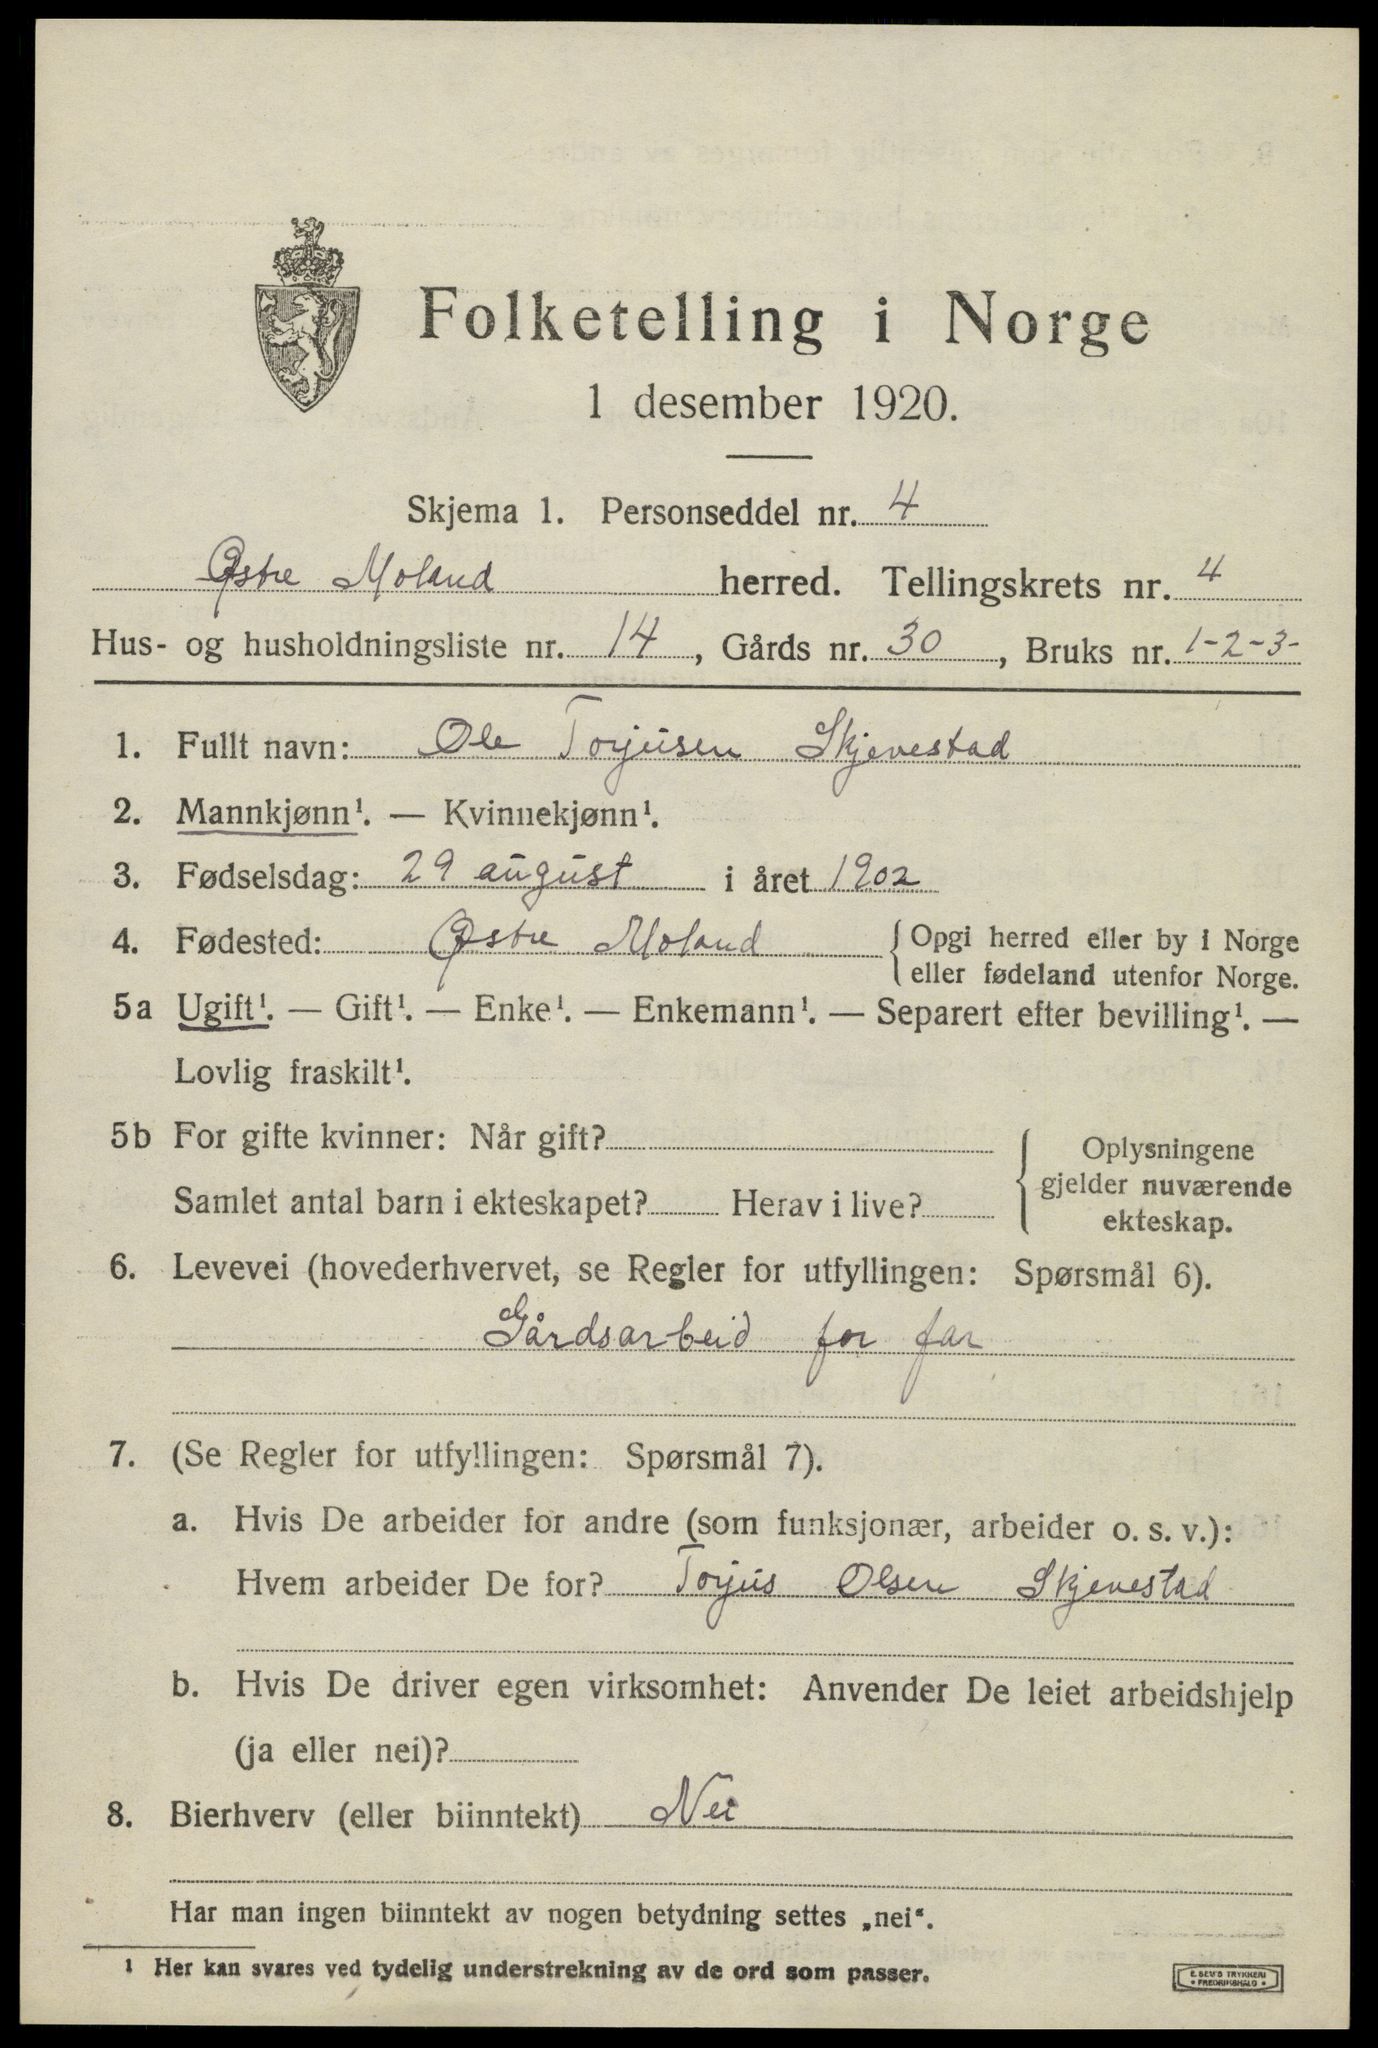 Folketelling i Norge
1 desember 1920.
Skjema 1. Personseddel nr. 4
Østre Moland herred. Tellingskrets nr. 4
Hus- og husholdningsliste nr. 14, Gårds nr. 30, Bruks nr. 1-2-3-
1. Fullt navn: Ole Torjusen Skjevestad
2. Mannkjønn¹. — Kvinnekjønn¹.
3. Fødselsdag: 29 august i året 1902
4. Fødested: Østre Moland { Opgi herred eller by i Norge
eller fødeland utenfor Norge.
5a Ugift¹. — Gift¹. — Enke¹. — Enkemann¹. — Separert efter bevilling¹. —
Lovlig fraskilt¹.
5b For gifte kvinner: Når gift?
Samlet antal barn i ekteskapet? Herav i live?
{ Oplysningene
gjelder nuværende
ekteskap.
6. Levevei (hovederhvervet, se Regler for utfyllingen: Spørsmål 6).
Gårdsarbeid for far
7. (Se Regler for utfyllingen: Spørsmål 7).
a. Hvis De arbeider for andre (som funksjonær, arbeider o. s. v.):
Hvem arbeider De for? Torjus Olsen Skjevestad
b. Hvis De driver egen virksomhet: Anvender De leiet arbeidshjelp
(ja eller nei)?
8. Bierhverv (eller biinntekt) Nei
Har man ingen biinntekt av nogen betydning settes „nei“.
¹ Her kan svares ved tydelig understrekning av de ord som passer.
E. SEM'S TRYKKERI
• FREDRIKSHALD •